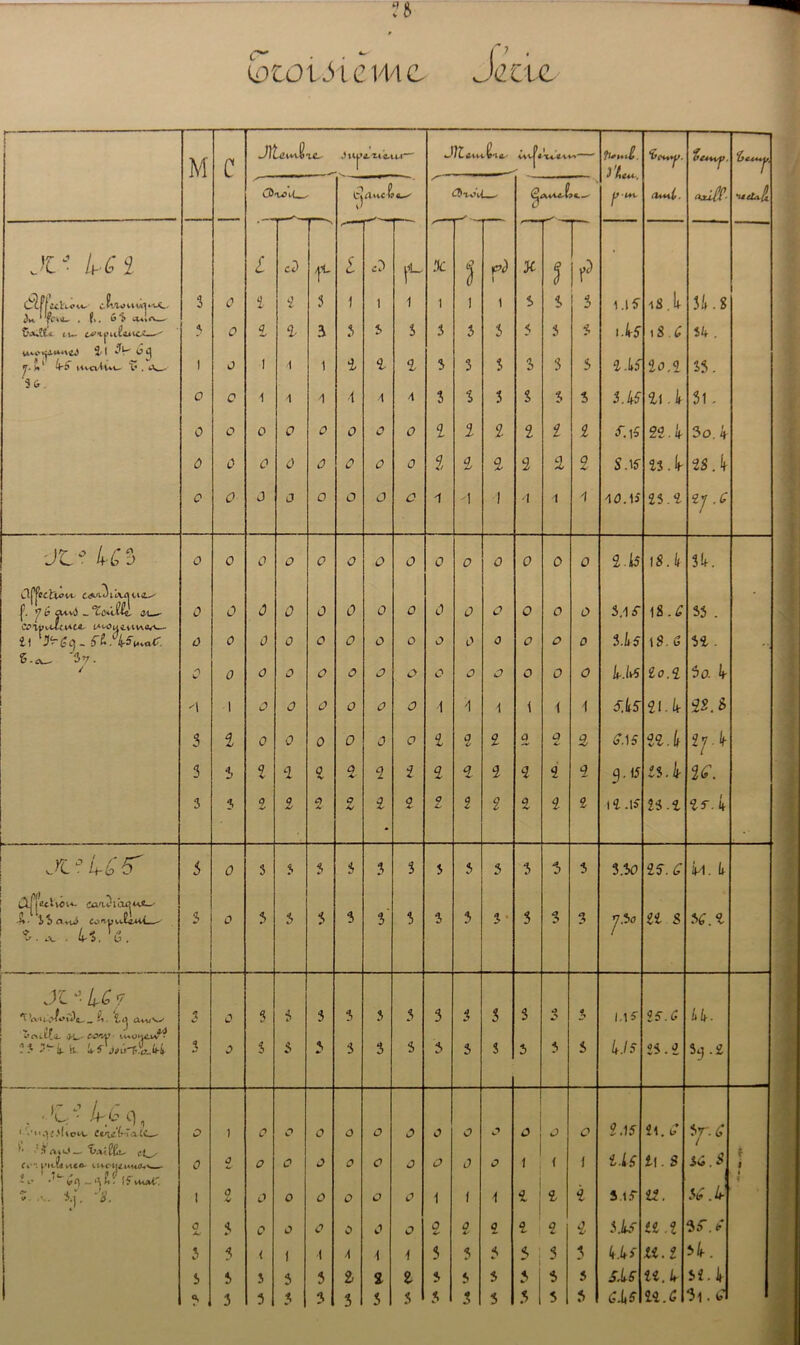 78
Troisième Série
M C Membre supérieur Membre inférieur Nomb. d'heu. p. m. Temp. amb. Temp. axill. Temp. rectale
Droit Gauche Droit Gauche
N.° 462
Affection chronique
du foie . f. 63 ans
Taille et corpulence
moyennes 21 Jr 69
36.
3 0 2 2 3 1 1 1 1 1 1 3 3 3 1.15 18.4 34.8
3 0 2 2 3 3 3 3 3 3 3 3 3 3 1.45 18.6 34.
1 0 1 1 1 2 2 2 3 3 3 3 3 3 2.45 20.2 33.
0 0 1 1 1 1 1 1 3 3 3 3 3 3 3.45 21.4 31.
0 0 0 0 0 0 0 0 2 2 2 2 2 2 5.15 22.4 30.4
0 0 0 0 0 0 0 0 2 2 2 2 2 2 8.15 23.4 28.4
0 0 0 0 0 0 0 0 1 1 1 1 1 1 10.15 23.2 27.6
N.° 463
Affection cardiaque
f. 76 ans _ Taille et
corpulence moyennes
37.
0 0 0 0 0 0 0 0 0 0 0 0 0 0 2.45 18.4 34.
0 0 0 0 0 0 0 0 0 0 0 0 0 0 3.15 18.6 33.
0 0 0 0 0 0 0 0 0 0 0 0 0 0 3.45 18.6 32.
0 0 0 0 0 0 0 0 0 0 0 0 0 0 4.45 20.2 30.4
1 1 0 0 0 0 0 0 1 1 1 1 1 1 5.45 21.4 28.8
3 2 0 0 0 0 0 0 2 2 2 2 2 2 6.15 22.4 27.4
3 3 2 2 2 2 2 2 2 2 2 2 2 2 9.15 23.4 26.
3 3 2 2 2 2 2 2 2 2 2 2 2 2 12.15 23.2 25.4
N.° 465
Affection cardiaque
h. 33 ans corpulent
3 0 3 3 3 3 3 3 3 3 3 3 3 3 3.30 25.6 41.4
3 0 3 3 3 3 3 3 3 3 3 3 3 3 7.30 22 8 36.2
N.° 467
Varioloïde _ h. 29 ans
Taille et corp. moyen.
3 0 3 3 3 3 3 3 3 3 3 3 3 3 1.15 25.6 44.
3 0 3 3 3 3 3 3 3 3 3 3 3 3 4.15 23.2 39.2
N.° 469
Congestion cérébrale
Taille et
corpulence moyennes
0 1 0 0 0 0 0 0 0 0 0 0 0 0 2.15 21.6 37.6
0 2 0 0 0 0 0 0 0 0 0 1 1 1 2.45 21.8 36.8
1 2 0 0 0 0 0 0 1 1 1 2 2 2 3.15 22. 36.4
2 3 0 0 0 0 0 0 2 2 2 2 2 2 3.45 22.2 35.6
3 3 1 1 1 1 1 1 3 3 3 3 3 3 4.45 22.2 34.
3 3 3 3 3 2 2 2 3 3 3 3 3 3 5.45 22.4 32.4
3 3 3 3 3 3 3 3 3 3 3 3 3 3 6.45 22.6 31.6